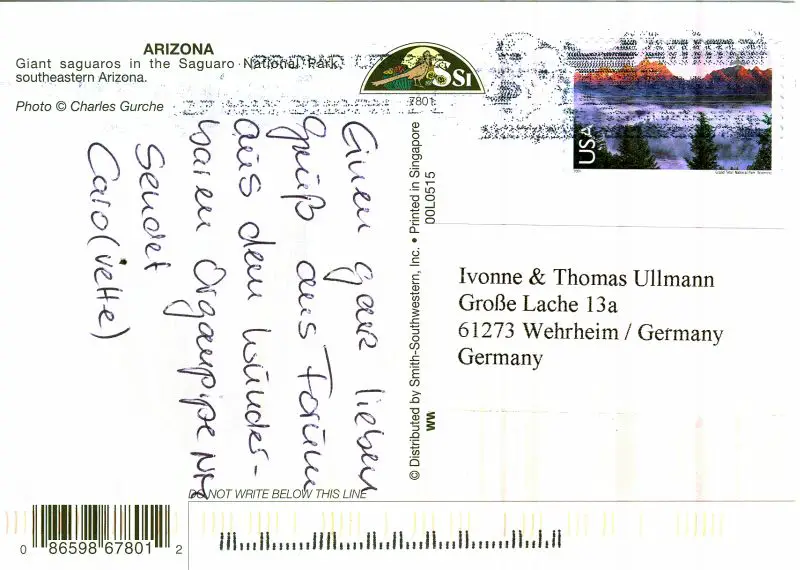 ARIZONA
Giant saguaros in the Saguaro National Park,
southeastern Arizona.
Photo © Charles Gurche
SSI
7801
USA
Einen ganz lieben
Gruß aus Forum
aus dem wunder-
baren Organpipe NM
Sendet
Caro(vette)
© Distributed by Smith-Southwestern, Inc. • Printed in Singapore
00L0515
WW
Ivonne & Thomas Ullmann
Große Lache 13a
61273 Wehrheim / Germany
Germany
DO NOT WRITE BELOW THIS LINE
0 86598 67801 2